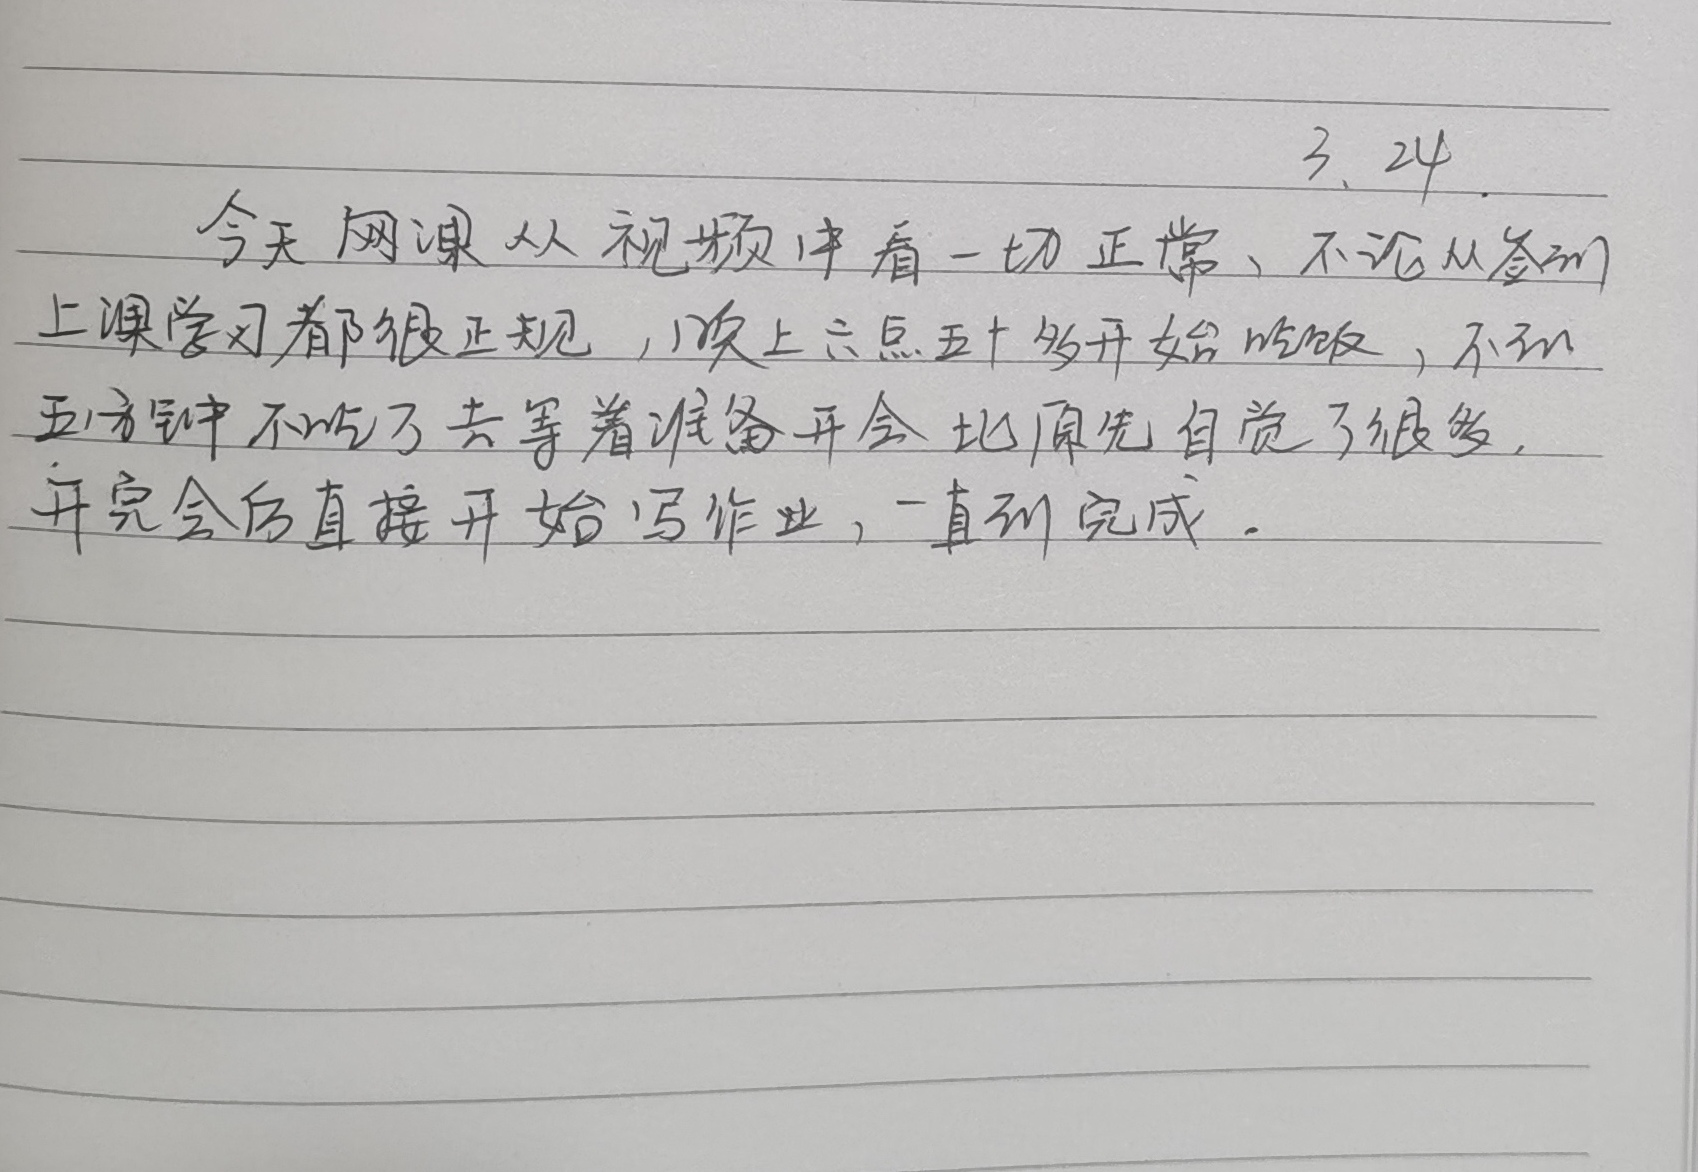 3、24.
今天网课从视频中看一切正常、不论从签到
上课学习都很正规,晚上六点五十多开始吃饭,不到
五分钟不吃了去等着准备开会比原先自觉了很多.
开完会后直接开始写作业,一直到完成.